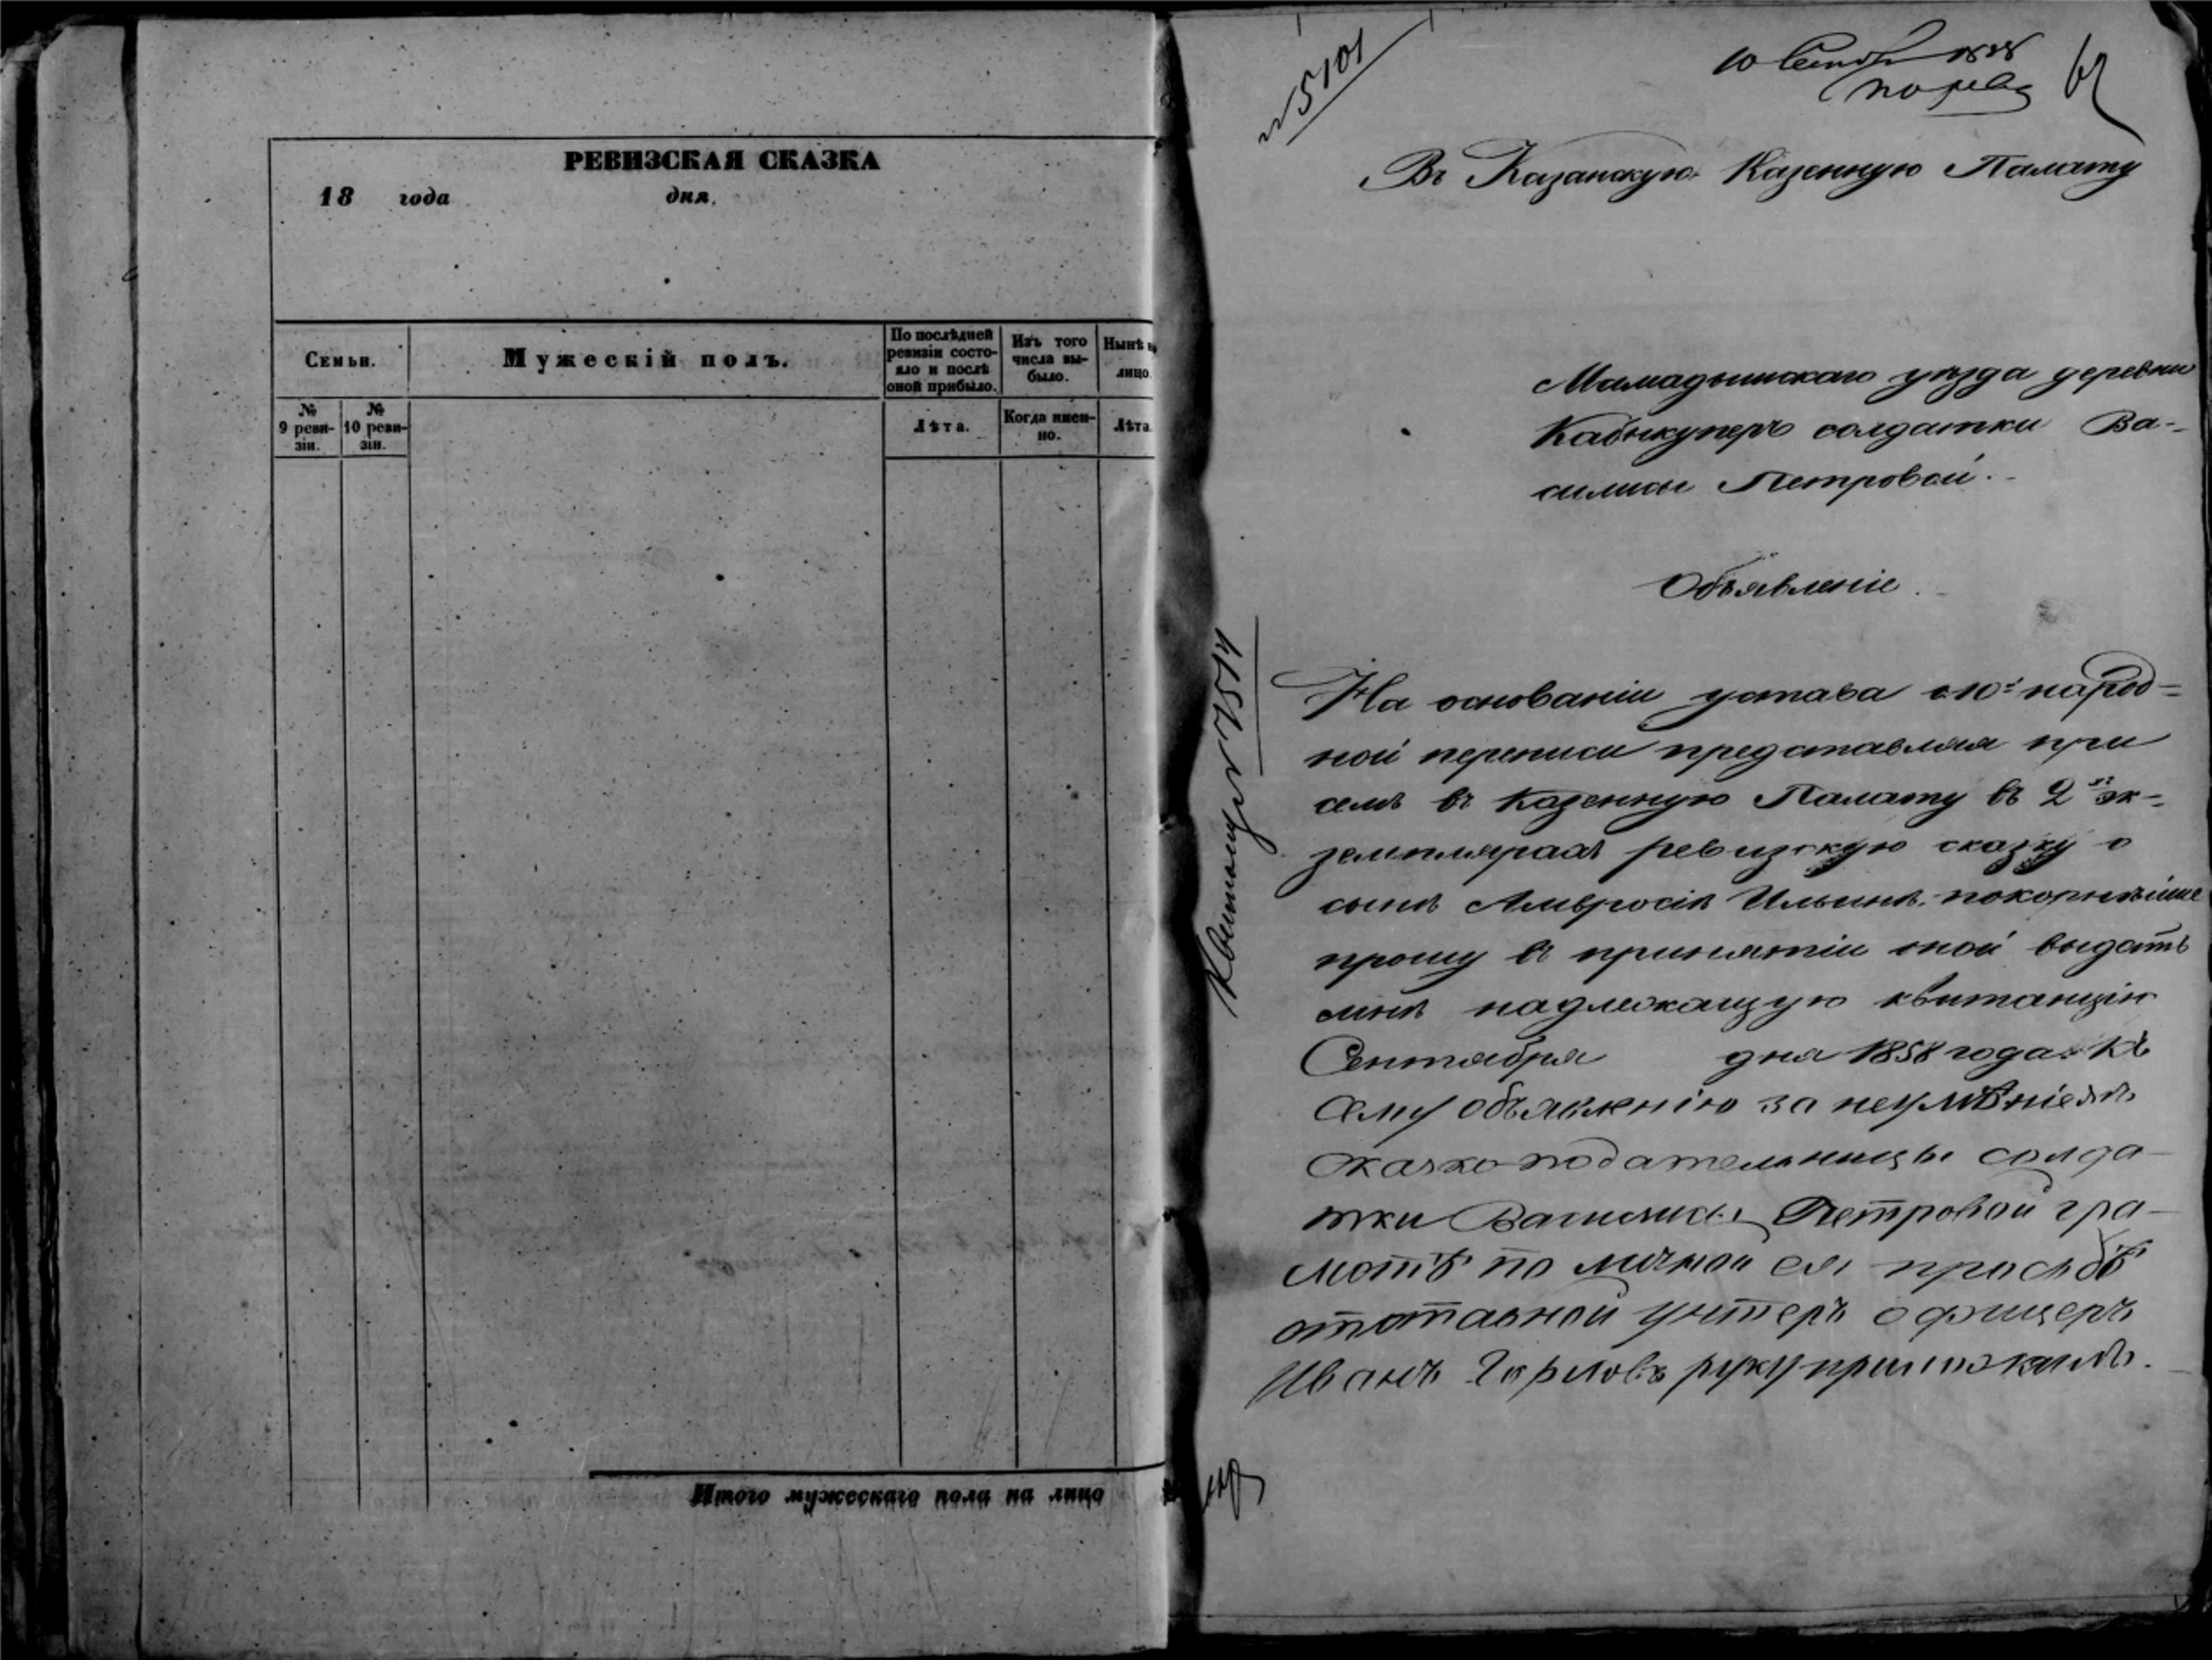 РЕВИЗСКАЯ СКАЗКА
18 года дня.
Семьи.
Мужескій полъ.
По послѣдней ревизіи состояло и послѣ оной прибыло.
Изъ того числа выбыло.
Нынѣ на лицо.
№ 9 ревизіи.
№ 10 ревизіи.
Лѣта.
Когда именно.
Лѣта
Итого мужескаго пола на лицо
№ 5101
10 Сентяб 1858
Въ Казанскую Казенную Палату
Мамадышскаго уѣзда деревни
Кабыкуперъ солдатки Ва-
силисы Петровой.
Объявленіе.
На основаніи устава о 10й народ-
ной переписи представляя при
семъ въ Казенную Палату въ 2хъ эк-
земплярахъ ревизскую сказку о
сынѣ Амвросіѣ Ильинѣ покорнѣйше
прошу въ принятіи оной выдать
мнѣ надлежащую квитанцію
Сентября дня 1858 года. Къ
сему объявленію за неумѣніемъ
сказко-подательницы солда-
тки Василисы Петровой гра-
мотѣ по личной ея прозьбѣ
отставной унтеръ офицеръ
Иванъ Горловъ руку приложилъ.
Квитанц № 7514